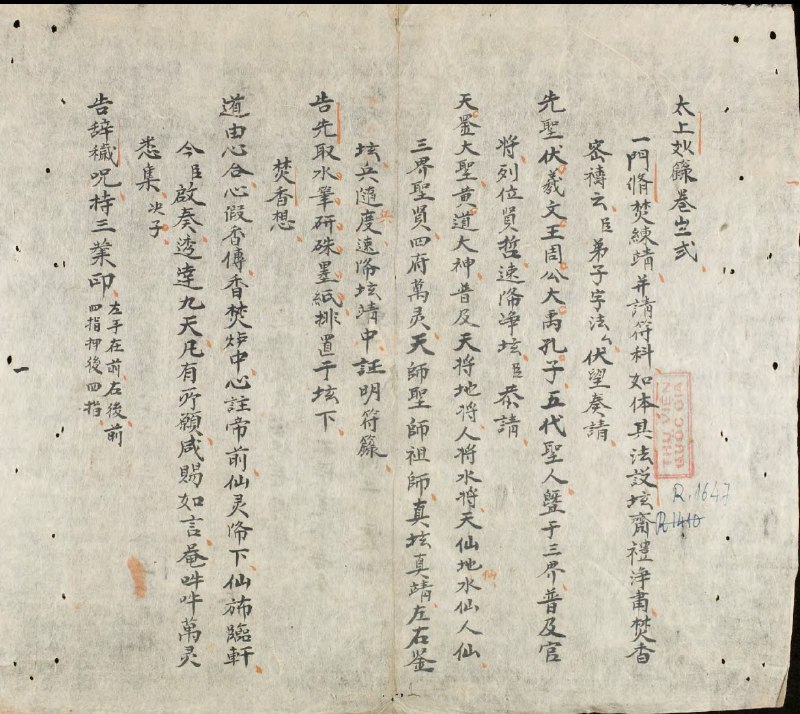 太上妙籙卷之弍
一門脩焚練靖并請符科如体具法設坛齋禮浄肅焚香
密禱云臣弟子字法伏望奏請
先聖伏羲文王周公大禹孔子五代聖人暨于三界普及官
将列位賢哲速降净坛臣恭請
天罡大聖黄道大神普及天将地将人将水将天仙地水仙人仙
仙
三界聖賢四府萬灵天師聖師祖師真坛真靖左右鉴
坛兵隨度速降坛靖中証明符籙
告先取水筆研硃墨紙排置于坛下
焚香想
道由心合心假香傳香焚炉中心註帝前仙灵降下仙斾臨軒
今臣啟奏透達九天凡有所願咸賜如言菴吽吽萬灵
悉集次子
告辞穢呪持三業印左手在前右後前
四指押後四指
THƯ VIỆN
QUỐC GIA
R.1647
R1410